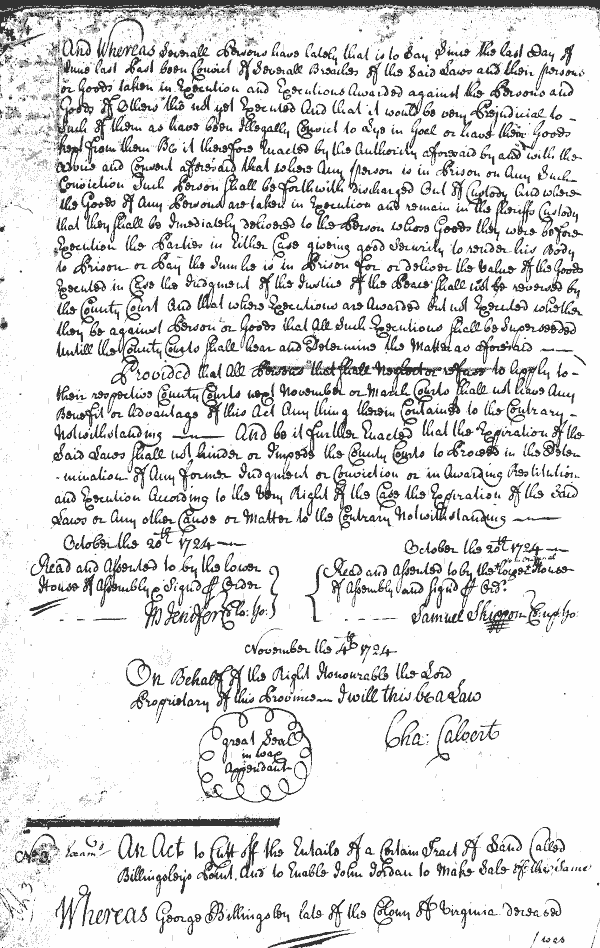 And Whereas Severall Persons have lately that is to Say Since the last Day of
June last Past been Convict of Severall Breaches of the Said Laws and their persons
or Goods taken in Execution and Executions Awarded against the Persons and
Goods of Others tho not yet Executed And that it would be very Prejudicial to
Such of them as have been Illegally Convict to Lye in Goal or have their Goods
kept from them Be it therefore Enacted by the Authority aforesaid by and with the
advice and Consent aforesaid that where Any person is in Prison on Any Such
Conviction Such Person Shall be forthwith discharged Out of Custody And where
the Goods of Any Persons are taken in Execution and remain in the Sheriffs Custody
that they Shall be Imediately delivered to the Person whose Goods they were before
Execution the Parties in Either Case giving good Security to render his Body
to Prison or Pay the Sum he is in Prison for or deliver the Value of the Goods
Executed in Case the Judgment of the Justice of the Peace Shall not be reversed by
the County Court And that where Executions are Awarded but not Executed whether
they be against Person or Goods that All Such Executions Shall be Superseded
untill the County Courts Shall hear and Determine the Matter as aforesaid
Provided that All Persons that Shall Neglect or refuse to Apply to
their respective County Courts next November or March Courts Shall not have Any
Benefit or Advantage of this Act Any thing therein Contained to the Contrary
Notwithstanding And be it further Enacted that the Expiration of the
Said Laws Shall not hinder or Impede the County Courts to Proceed in the Deter
-mination of Any former Judgment or Conviction or in Awarding Restitution
and Execution According to the Very Right of the Case the Expiration of the Said
Laws or Any other Cause or Matter to the Contrary Notwithstanding
October the 20th 1724
Read and Assented to by the lower
House of Assembly & Signd p Order
M Jenifer Clo: ho:
October the 20th 1724
Read and Assented to by the upper House
of Assembly and Signd p Ordr.
Samuel Skippon Cl: up: ho:
November the 4th 1724
On Behalf of the Right Honourable the Lord
Proprietary of this Province I will this be a Law
Cha: Calvert
great Seal
in wax
Appendant
An Act to Cutt off the Entaile of a Certain Tract of Land Called
Billingsleys Point, And to Enable John Jordan to Make Sale of the Same
Whereas George Billingsley late of the Colony of Virginia deceased
was